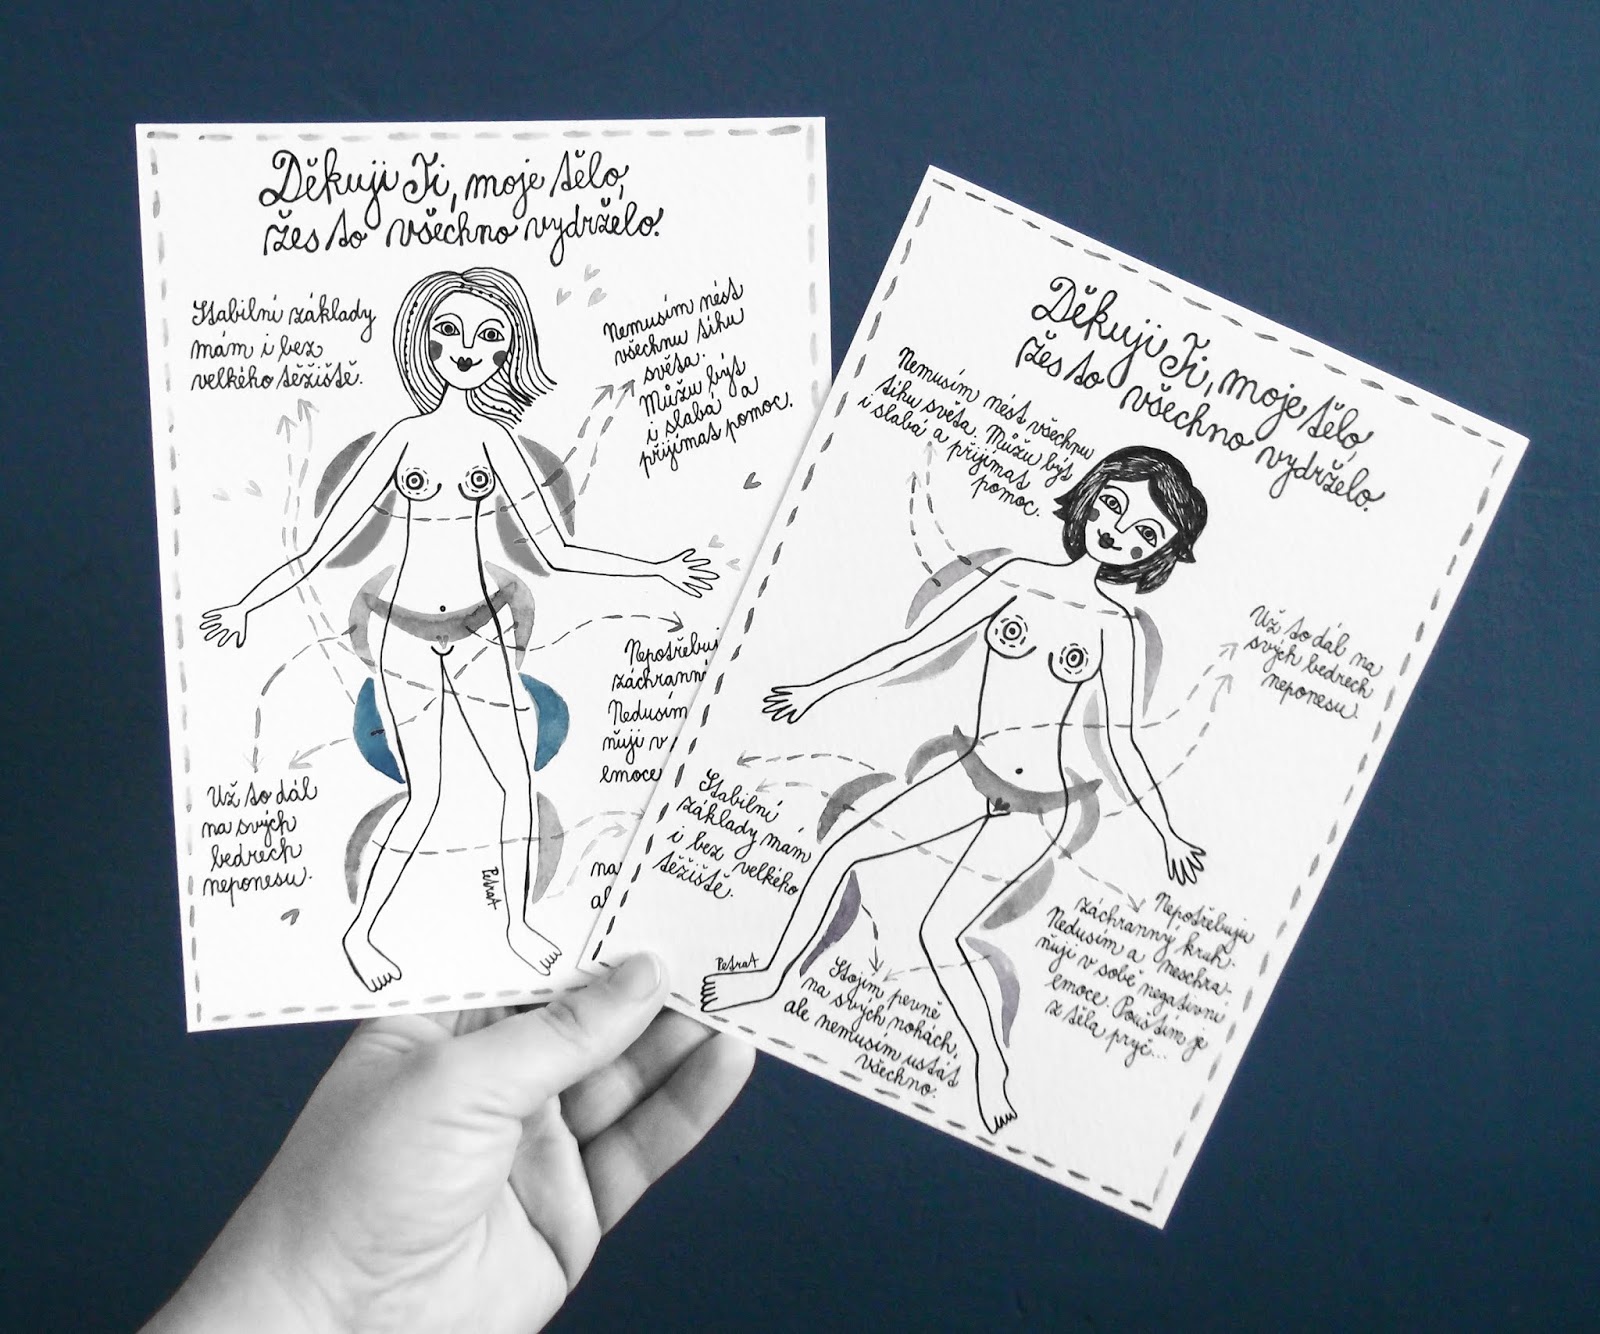 Děkuji Ti, moje tělo,
žes to všechno vydrželo.
Stabilní základy
mám i bez
velkého těžiště.
Nemusím nést
všechnu tíhu
světa.
Můžu být
i slabá a
přijímat pomoc.
Nepotřebuj
záchrann
Nedusím
ňuji v
emoce
Už to dál
na svých
bedrech
neponesu.
na
al
PetraA
Děkuji Ti, moje tělo,
žes to všechno vydrželo.
Nemusím nést všechnu
tíhu světa. Můžu být
i slabá a přijímat
pomoc.
Už to dál na
svých bedrech
neponesu.
Stabilní
základy mám
i bez velkého
těžiště.
Nepotřebuju
záchranný kruh.
Nedusím a neschra-
ňuji v sobě negativní
emoce. Pouštím je
z těla pryč...
Stojím pevně
na svých nohách,
ale nemusím ustát
všechno.
PetraA